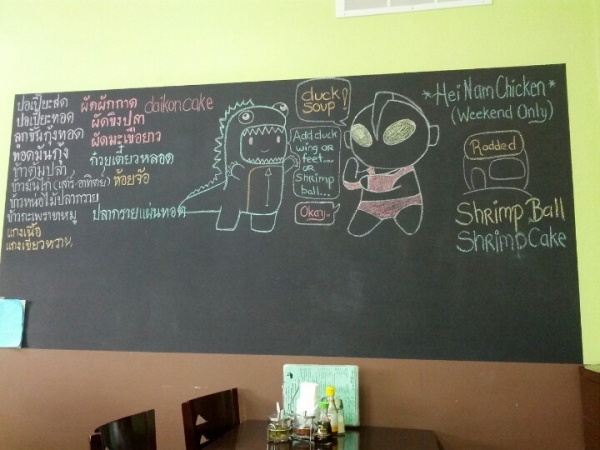 ปอเปี๊ยะสด
ปอเปี๊ยะทอด
ลูกชิ้นกุ้งทอด
ทอดมันกุ้ง
ข้าวต้มปลา
ข้าวมันไก่ (เสาร์-อาทิตย์)
ข้าวหน่อไม้ปลากราย
ข้าวกะเพราหมู
แกงเนื้อ
แกงเขียวหวาน
ผัดผักกาด daikon cake
ผัดขิงปลา
ผัดมะเขือยาว
ก๋วยเตี๋ยวหลอด
ห้อยจ๊อ
ปลากรายแผ่นทอด
duck
soup!
Add duck
wing or
feet...
or
Shrimp
ball...
Okay.
*Hei Nam Chicken*
(Weekend Only)
Rodded
Shrimp Ball
Shrimp Cake